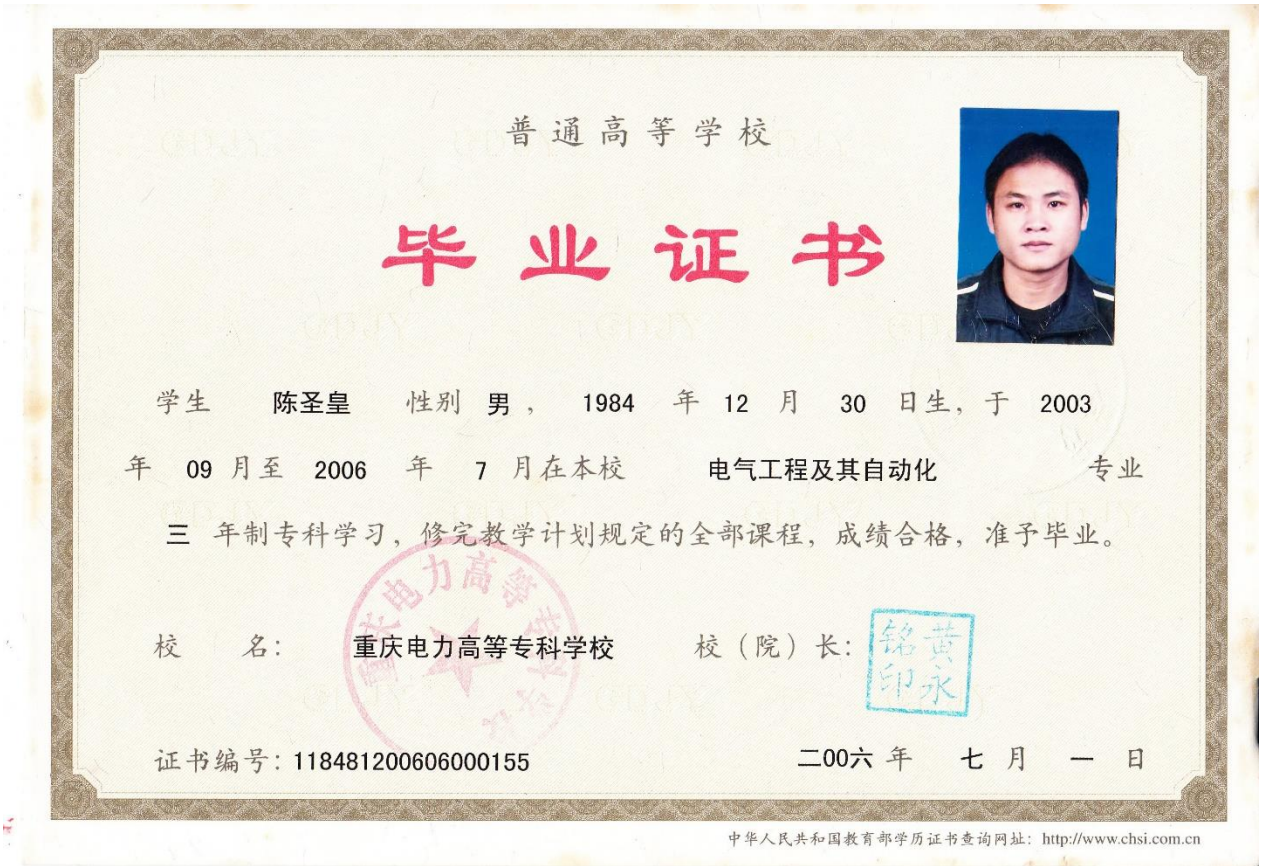 普通高等学校
毕业证书
学生 陈圣皇 性别 男， 1984 年 12 月 30 日生，于 2003
年 09 月至 2006 年 7 月在本校 电气工程及其自动化 专业
三 年制专科学习，修完教学计划规定的全部课程，成绩合格，准予毕业。
重庆电力高等专科学校
校 名： 重庆电力高等专科学校 校（院）长：
黄永
铭印
证书编号：118481200606000155 二00六 年 七 月 一 日
中华人民共和国教育部学历证书查询网址：http://www.chsi.com.cn